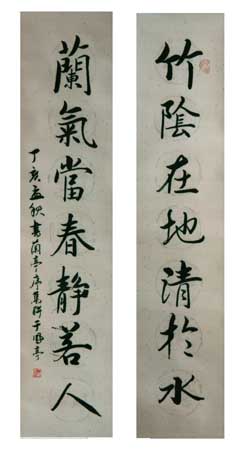 竹陰在地清於水
蘭氣當春静若人
丁亥孟秋書蘭亭序集聯于亭